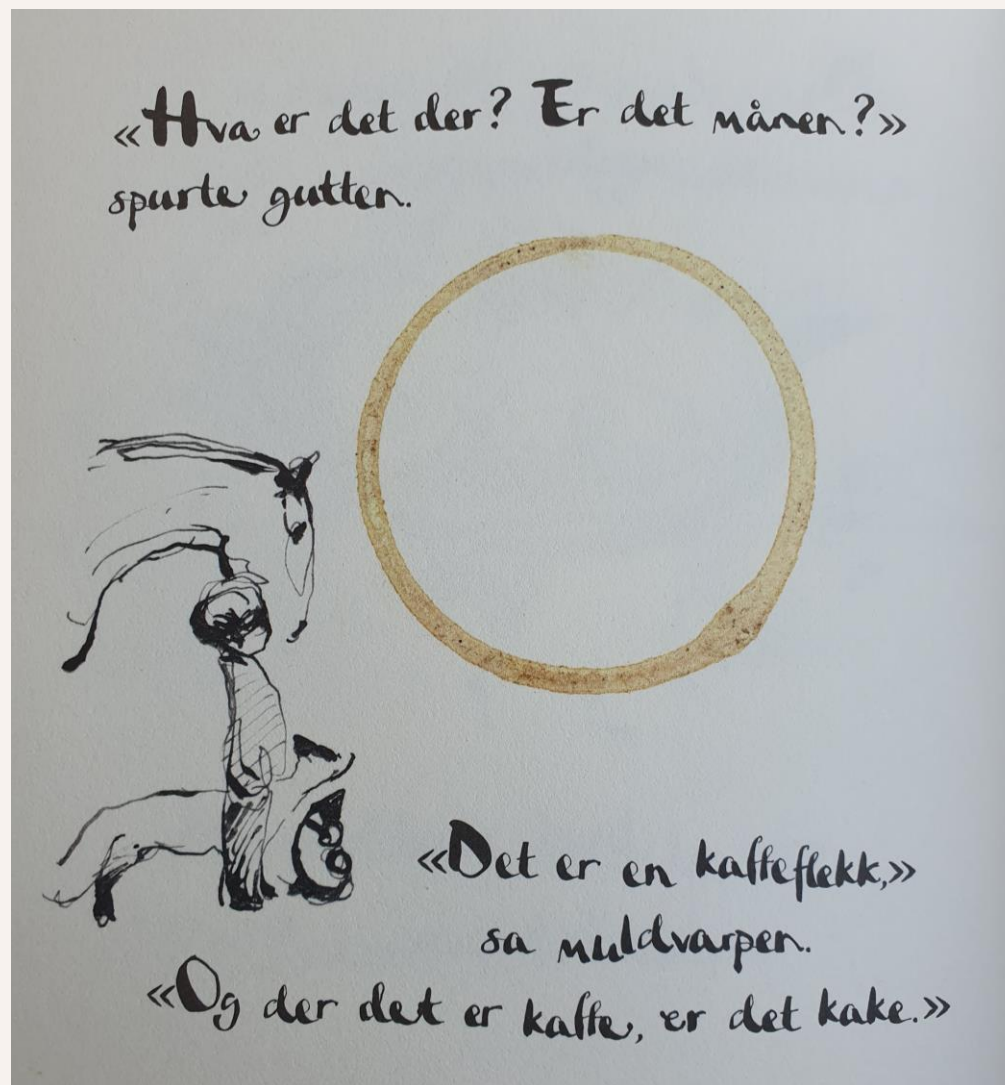 «Hva er det der? Er det månen?»
spurte gutten.
«Det er en kaffeflekk,»
sa muldvarpen.
«Og der det er kaffe, er det kake.»